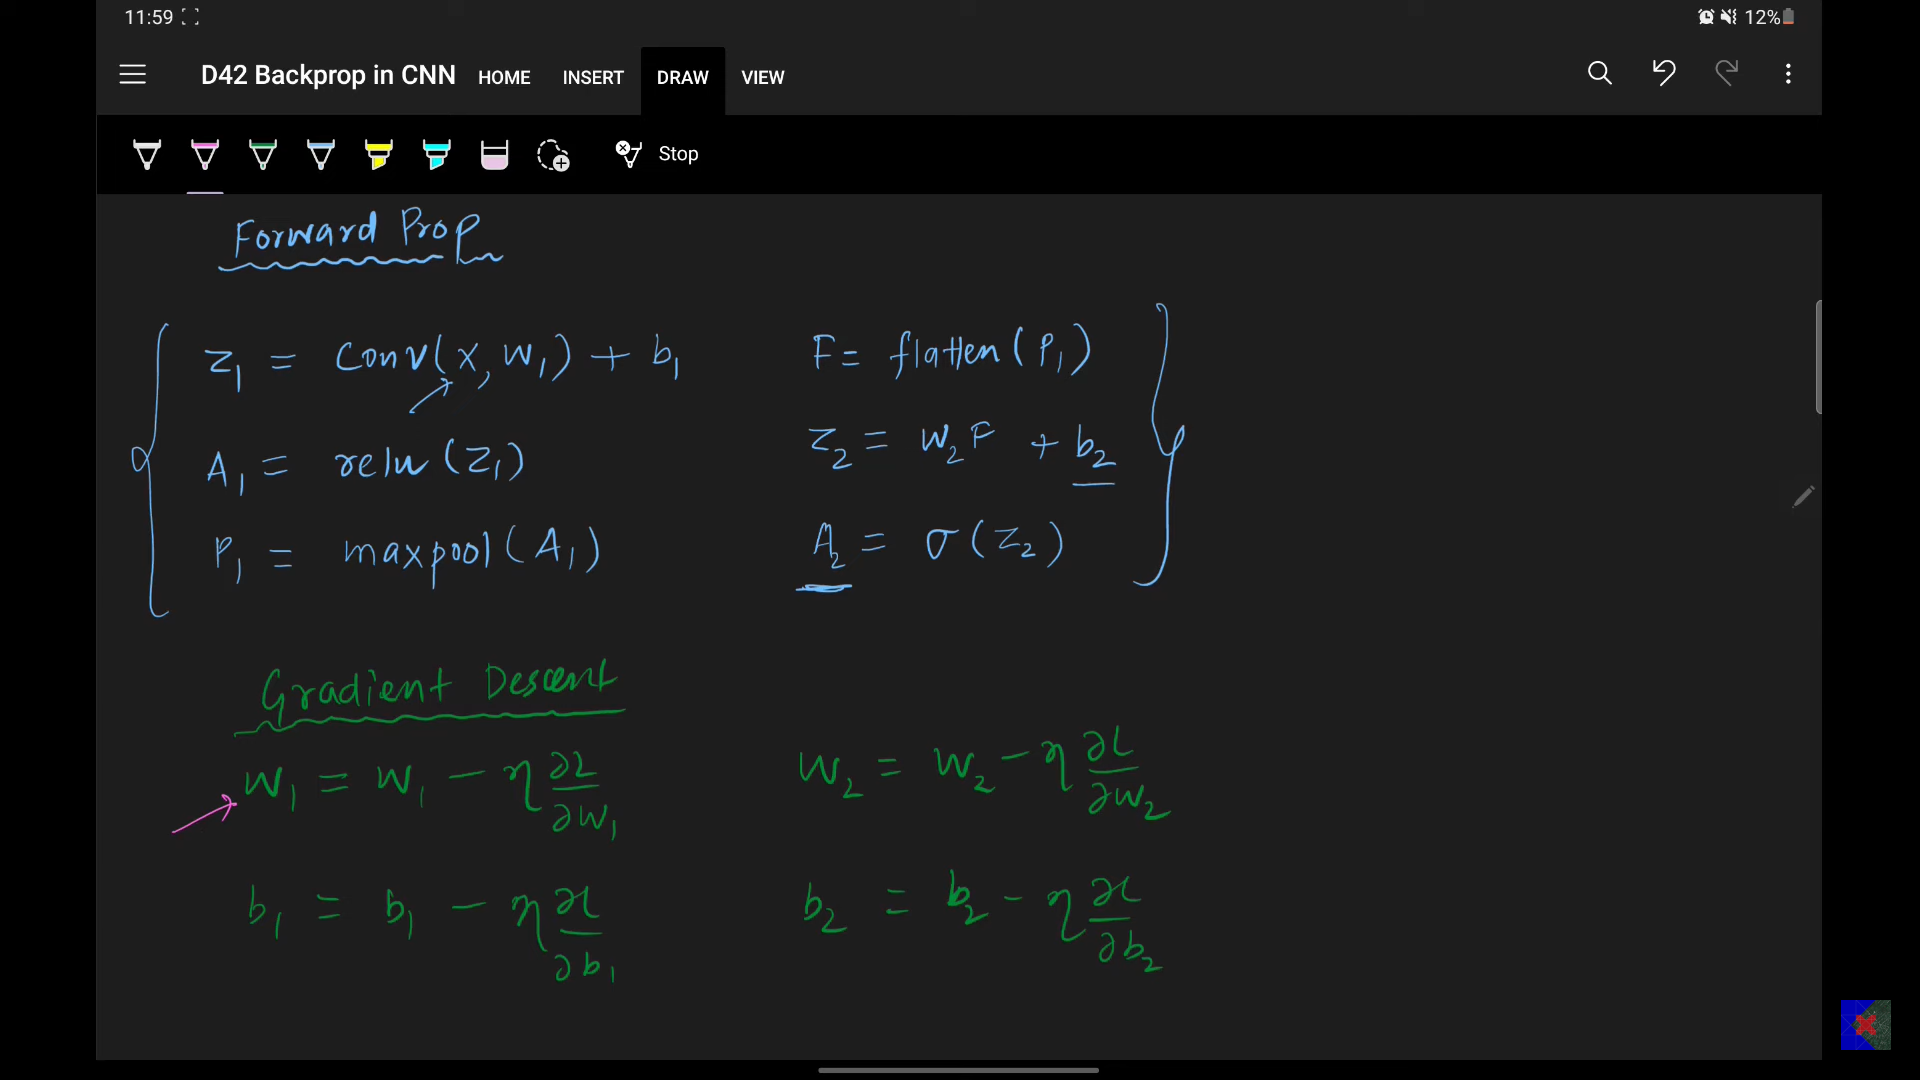 11:59 12%
D42 Backprop in CNN HOME INSERT DRAW VIEW
Stop
Forward Prop
Z₁ = Conv(X, W₁) + b₁
A₁ = relu(Z₁)
P₁ = maxpool(A₁)
F = flatten(P₁)
Z₂ = W₂F + b₂
A₂ = σ(Z₂)
Gradient Descent
W₁ = W₁ − η ∂L/∂W₁
b₁ = b₁ − η ∂L/∂b₁
W₂ = W₂ − η ∂L/∂W₂
b₂ = b₂ − η ∂L/∂b₂